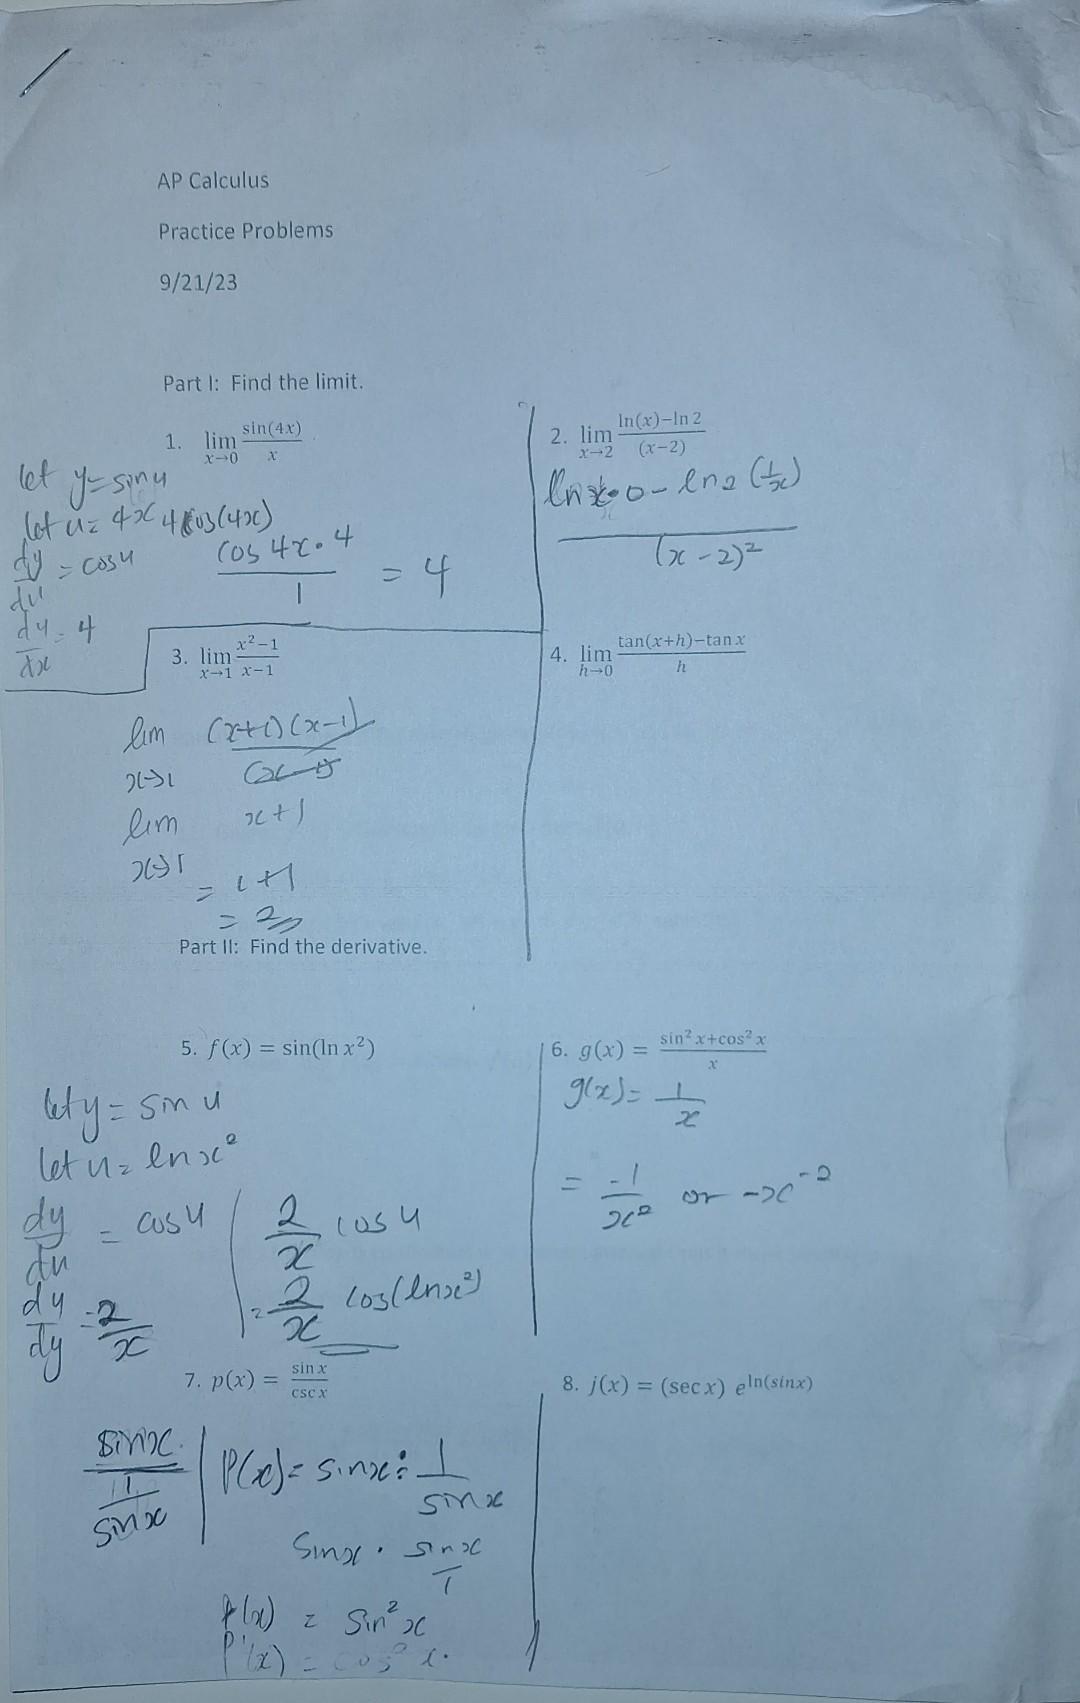 AP Calculus
Practice Problems
9/21/23
Part I: Find the limit.
1. lim x→0 sin(4x)/x
let y = sin u
let u = 4x 4cos(4x)
dy/du = cos u
du/dx = 4
cos 4x · 4 / 1 = 4
2. lim x→2 ln(x)−ln 2/(x−2)
ln x · 0 − ln 2 (1/x)
(x − 2)²
3. lim x→1 x²−1/x−1
lim x→1 (x+1)(x−1)/(x−1)
lim x→1 x+1
= 1+1
= 2
4. lim h→0 tan(x+h)−tan x/h
Part II: Find the derivative.
5. f(x) = sin(ln x²)
let y = sin u
let u = ln x²
dy/du = cos u
dy/dy = 2/x
2/x cos u
= 2/x cos(ln x²)
6. g(x) = sin² x+cos² x/x
g(x) = 1/x
= −1/x² or −x⁻²
7. p(x) = sin x/csc x
sin x/1/sin x
P(x) = sin x ÷ 1/sin x
sin x · sin x/1
P(x) = sin² x
P'(x) = cos² x.
8. j(x) = (sec x) e^ln(sinx)